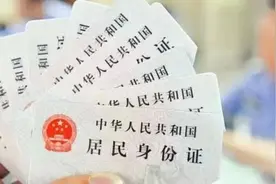 中华人民共和国
中华人民共和国
份证
中华人民共和国
身份证
中华人民共和国
居民身份证